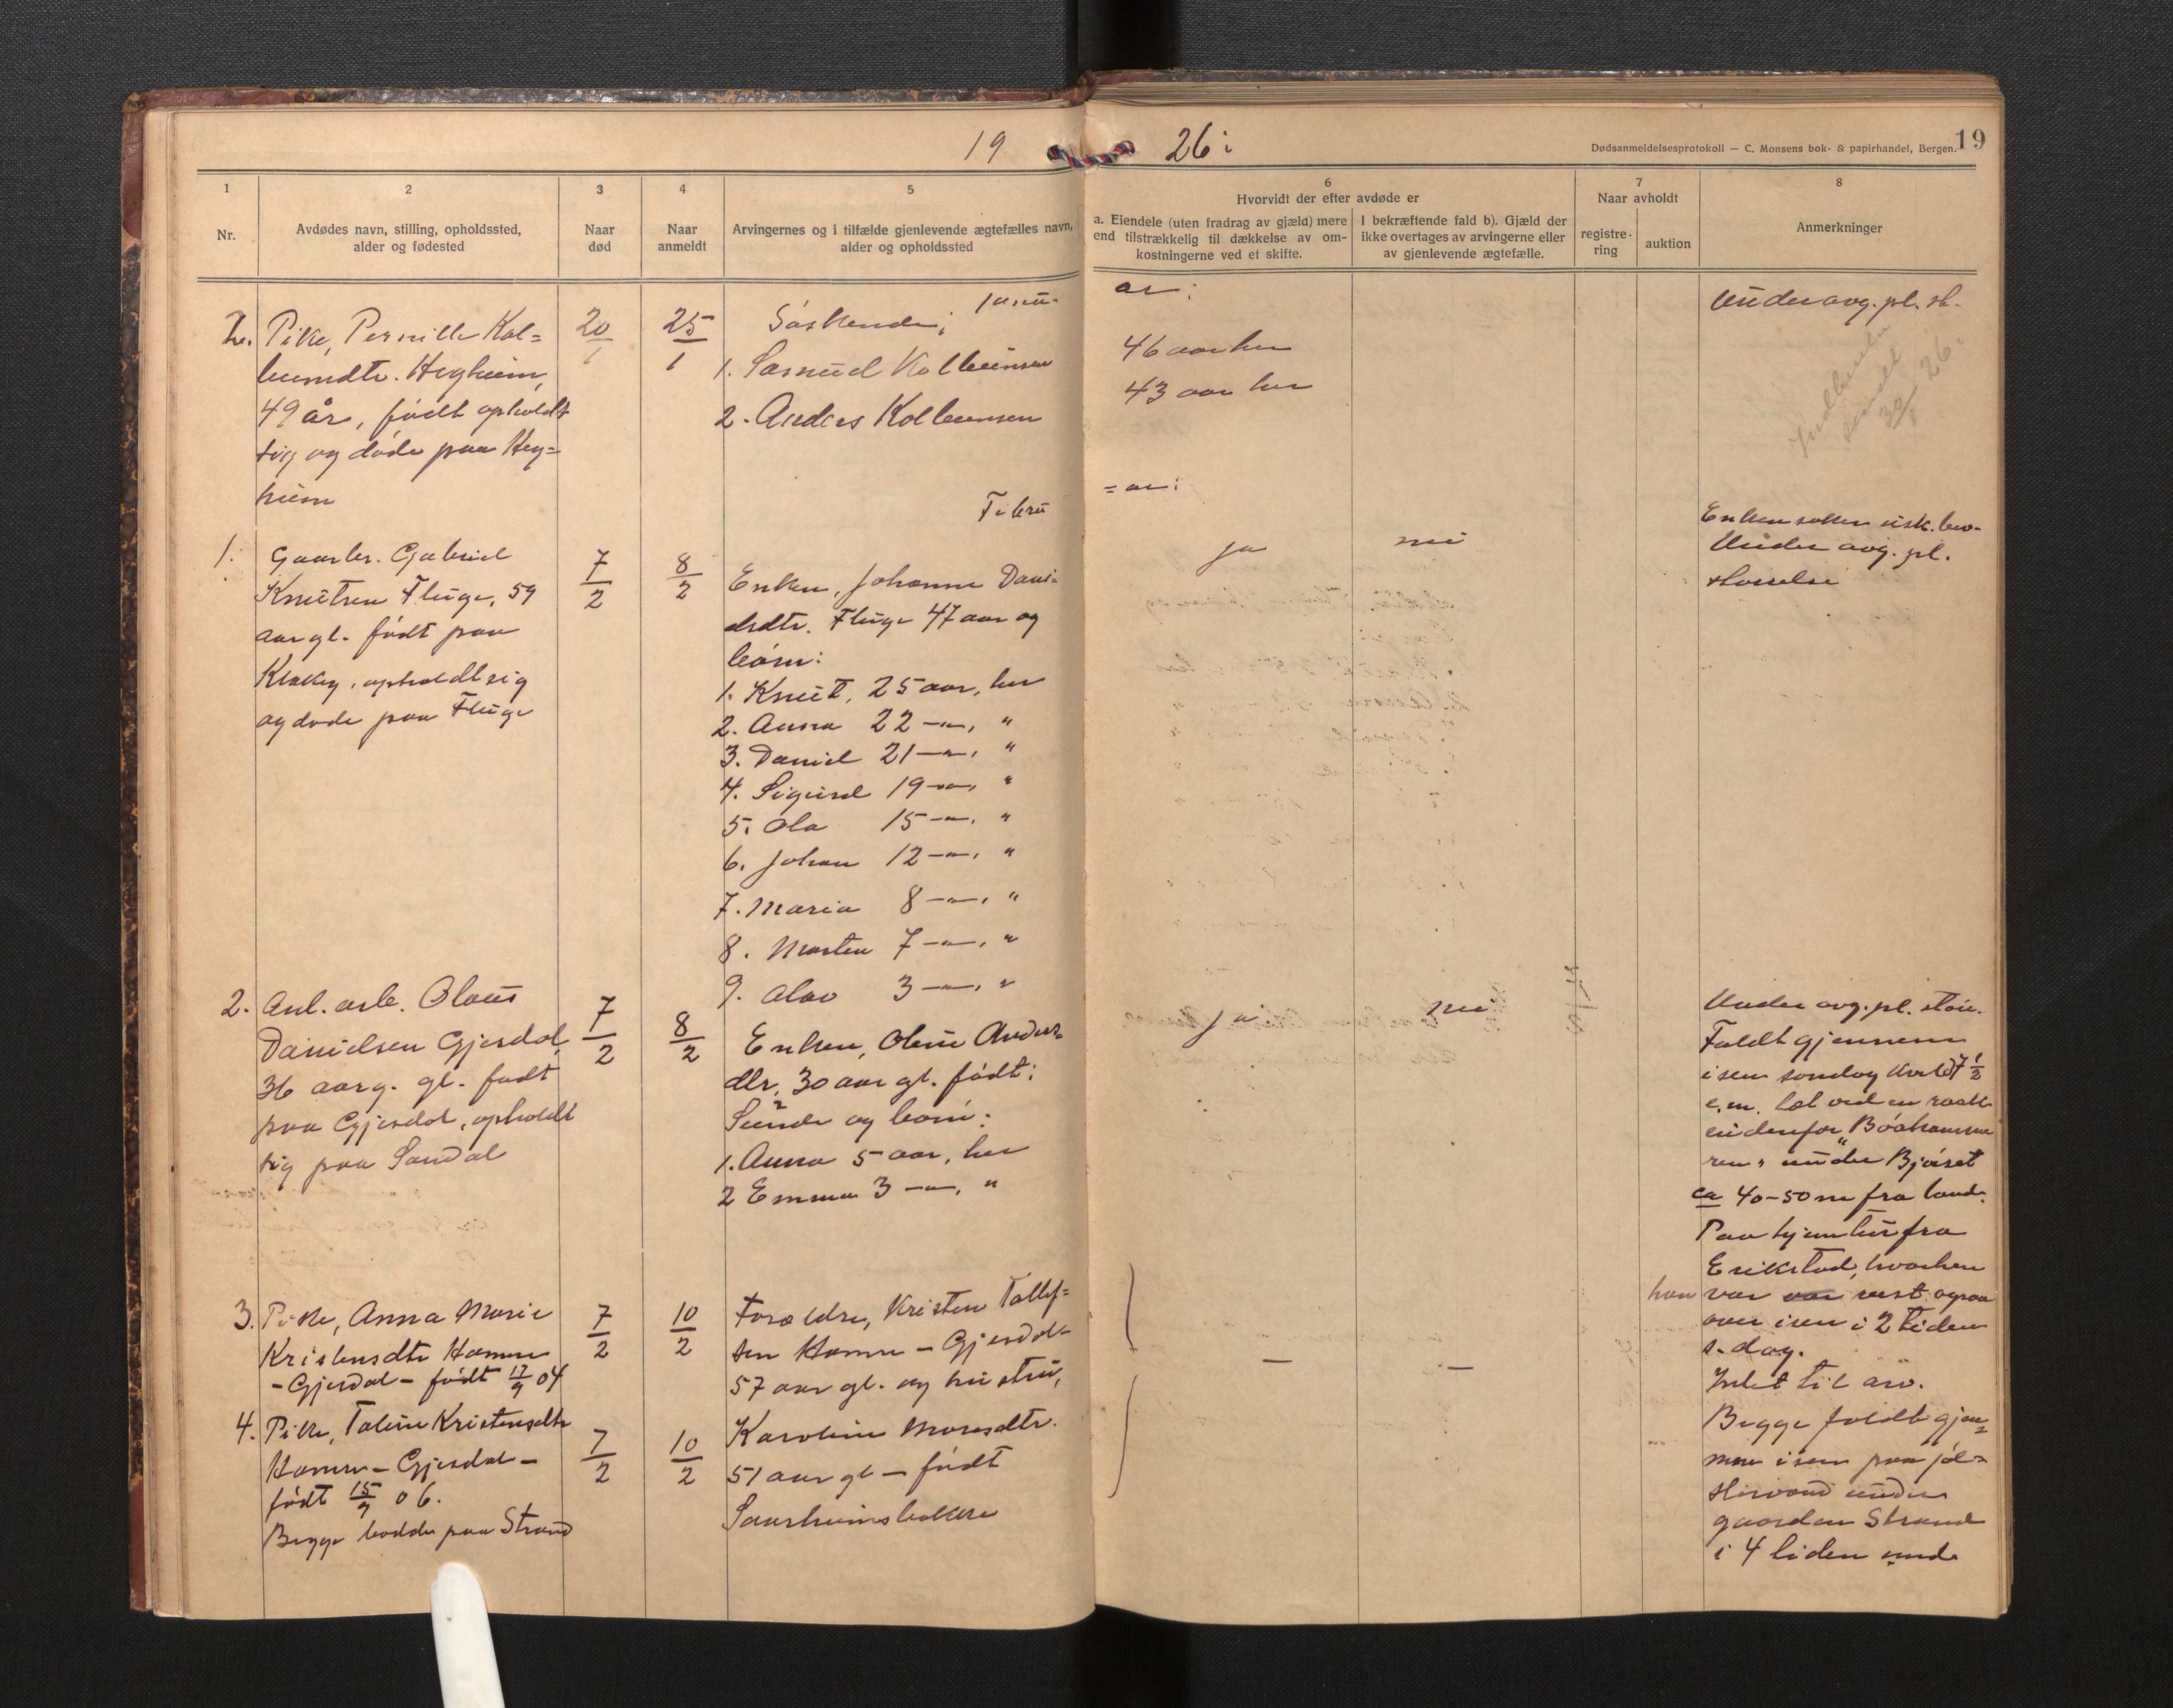 19 26:
19
Dødsanmeldelsesprotokoll — C. Monsens bok- & papirhandel, Bergen.
1
Nr.
2
Avdødes navn, stilling, opholdssted,
alder og fødested
3
Naar
død
4
Naar
anmeldt
5
Arvingernes og i tilfælde gjenlevende ægtefælles navn,
alder og opholdssted
6
Hvorvidt der efter avdøde er
a. Eiendele (uten fradrag av gjæld) mere
end tilstrækkelig til dækkelse av om-
kostningerne ved et skifte.
I bekræftende fald b). Gjæld der
ikke overtages av arvingerne eller
av gjenlevende ægtefælle.
7
Naar avholdt
registre-
ring
auktion
8
Anmerkninger
Janu- ar:
2. Pike, Pernille Kol=
beinsdtr. Hegheim,
49 år, født opholdt
sig og døde paa Heg=
heim
20/1
25/1
Søskende:
1. Samuel Kolbeinsen
46 aar her
2. Anders Kolbeinsen
43 aar her
Under avg. pl. st.
30/1 26.
Febru = ar:
1. Gaarbr. Gabriel
Knutsen Fluge, 59
aar gl. født paa
Klakeg, opholdt sig
og døde paa Fluge
7/2
8/2
Enken, Johanne Dani=
elsdtr. Fluge 47 aar og
børn:
1. Knut, 25 aar, her
2. Anna 22 —"—, "
3. Daniel 21 —"—, "
4. Sigurd 19 —"—, "
5. Ola 15 —"—, "
6. Johan 12 —"—, "
7. Maria 8 —"—, "
8. Morten 7 —"—, "
9. Olav 3 —"—, "
ja
nei
Enken sitter usk. bo.
Under avg. pl.
størrelse
2. Anl. arb. Olaus
Danielsen Gjesdal,
36 aar g. gl. født
paa Gjesdal, opholdt
sig paa Sandal
7/2
8/2
Enken, Oline Anders=
dtr, 30 aar gl. født:
Sunde og børn:
1. Anna 5 aar, her
2 Emma 3 —"—, "
ja
nei
Under avg. pl. stør.
Faldt gjennem
isen søndag kveld 7 1/2
e.m. ved en
utenfor "Bøahamme
ren" under Bjørset
ca 40-50 m fra land.
Paa hjemtur fra
Eriksstad, hvorhen
han var var reist ogsaa
over isen i 2 tiden
s. dag.
3. Pike, Anna Marie
Kristensdtr Hamre
- Gjesdal - født 17/9 04
7/2
10/2
Forældre, Kristen Tollef=
sen Hamre - Gjesdal -
57 aar gl. og hustru,
Karoline Monsdtr.
51 aar gl - født
4. Pike, Taline Kristensdtr
Hamre - Gjesdal -
født 15/9 06.
Begge bodde paa Strand
7/2
10/2
—
—
Intet til arv.
Begge faldt gjen=
nem isen paa Jøl=
stervand under
gaarden Strand
i 4 tiden